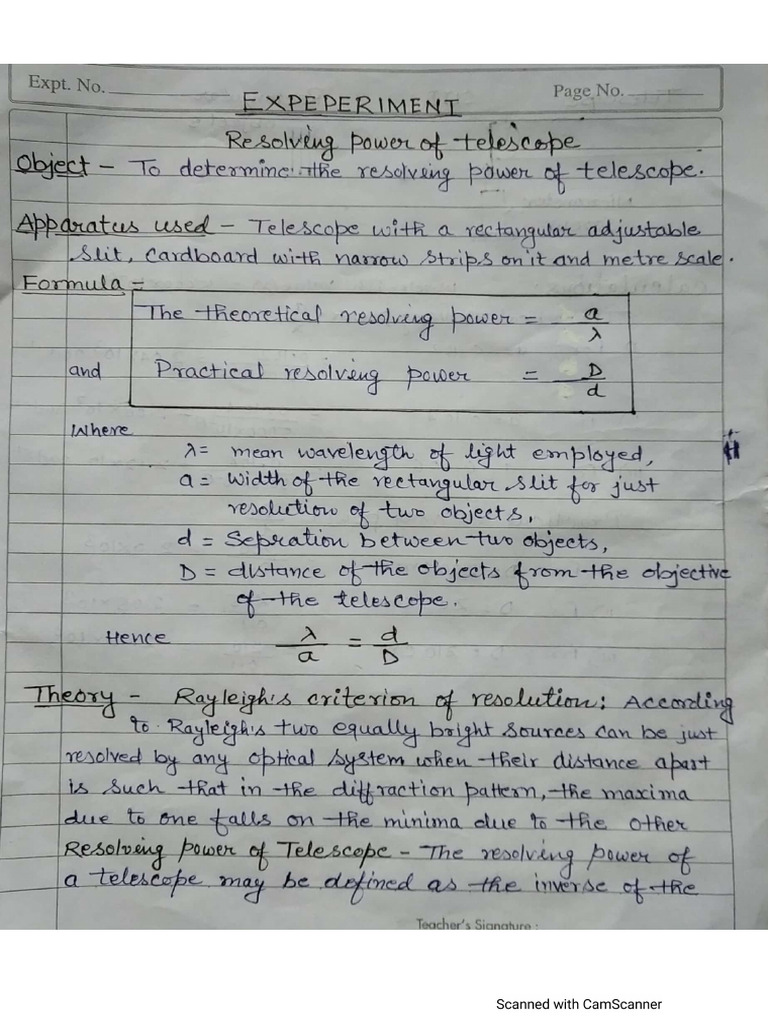 Expt. No.
Page No.
EXPEPERIMENT
Resolving power of telescope
Object - To determine the resolving power of telescope.
Apparatus used - Telescope with a rectangular adjustable
slit, cardboard with narrow strips on it and metre scale.
Formula =
The theoretical resolving power = a/λ
and Practical resolving power = D/d
Where
λ = mean wavelength of light employed,
a = width of the rectangular slit for just
resolution of two objects,
d = Sepration between two objects,
D = distance of the objects from the objective
of the telescope.
Hence λ/a = d/D
Theory - Rayleigh's criterion of resolution: According
to Rayleigh's two equally bright sources can be just
resolved by any optical system when their distance apart
is such that in the diffraction pattern, the maxima
due to one falls on the minima due to the other
Resolving power of Telescope - The resolving power of
a telescope may be defined as the inverse of the
Teacher's Signature :
Scanned with CamScanner